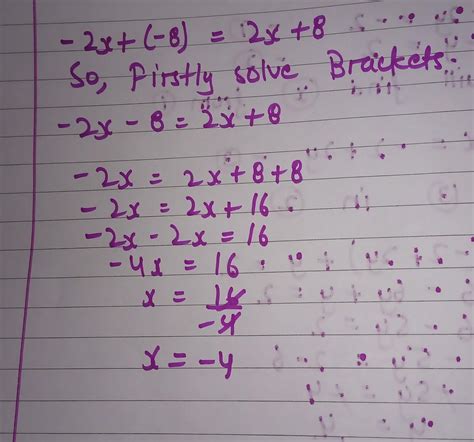 -2x+(-8) = 2x+8
So, Firstly solve Brackets.
-2x-8 = 2x+8
-2x = 2x+8+8
-2x = 2x+16
-2x-2x = 16
-4x = 16
x = 16/-4
x = -4